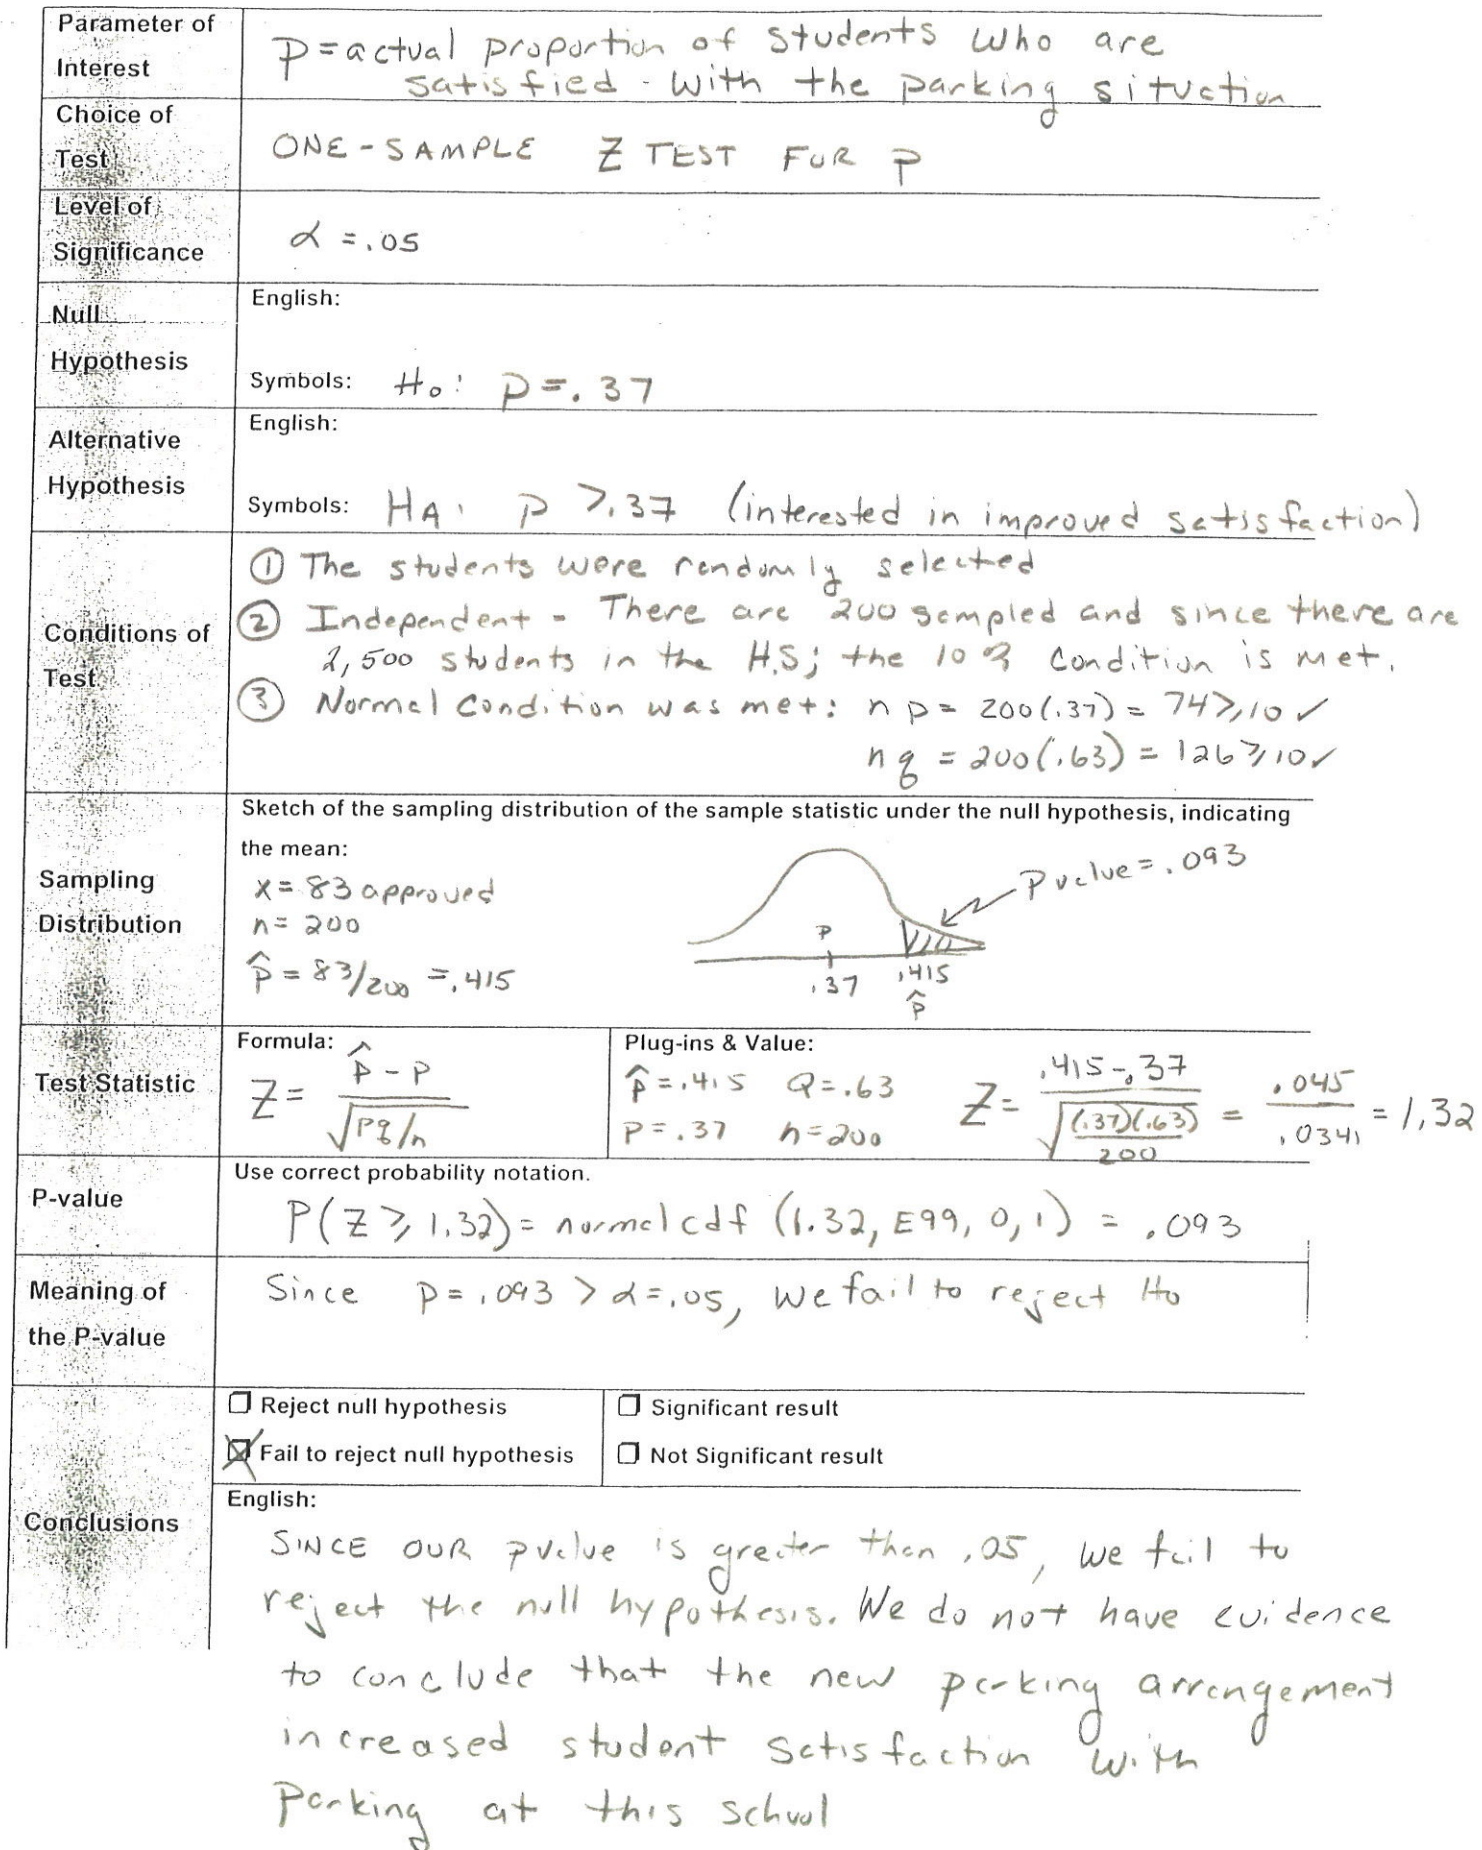 Parameter of
Interest
P = actual proportion of students who are
satisfied - with the parking situation
Choice of
Test
ONE-SAMPLE Z TEST FOR P
Level of
Significance
α = .05
Null
Hypothesis
English:
Symbols: H₀: P = .37
Alternative
Hypothesis
English:
Symbols: HA: P > .37 (interested in improved satisfaction)
Conditions of
Test
① The students were randomly selected
② Independent - There are 200 sampled and since there are
2,500 students in the H.S; the 10% condition is met.
③ Normal Condition was met: np = 200(.37) = 74 ≥ 10 ✓
nq = 200(.63) = 126 ≥ 10 ✓
Sampling
Distribution
Sketch of the sampling distribution of the sample statistic under the null hypothesis, indicating
the mean:
x = 83 approved
n = 200
p̂ = 83/200 = .415
Pvalue = .093
P
.37
.415
p̂
Test Statistic
Formula:
Z = (p̂ - P) / √(Pq/n)
Plug-ins & Value:
p̂ = .415 Q = .63
P = .37 n = 200
Z = (.415 - .37) / √((.37)(.63)/200) = .045/.0341 = 1.32
P-value
Use correct probability notation.
P(Z ≥ 1.32) = normalcdf (1.32, E99, 0, 1) = .093
Meaning of
the P-value
Since P = .093 > α = .05, we fail to reject H₀
Conclusions
☐ Reject null hypothesis
☒ Fail to reject null hypothesis
☐ Significant result
☐ Not Significant result
English:
SINCE OUR pvalue is greater than .05, we fail to
reject the null hypothesis. We do not have evidence
to conclude that the new parking arrangement
increased student satisfaction with
Parking at this school